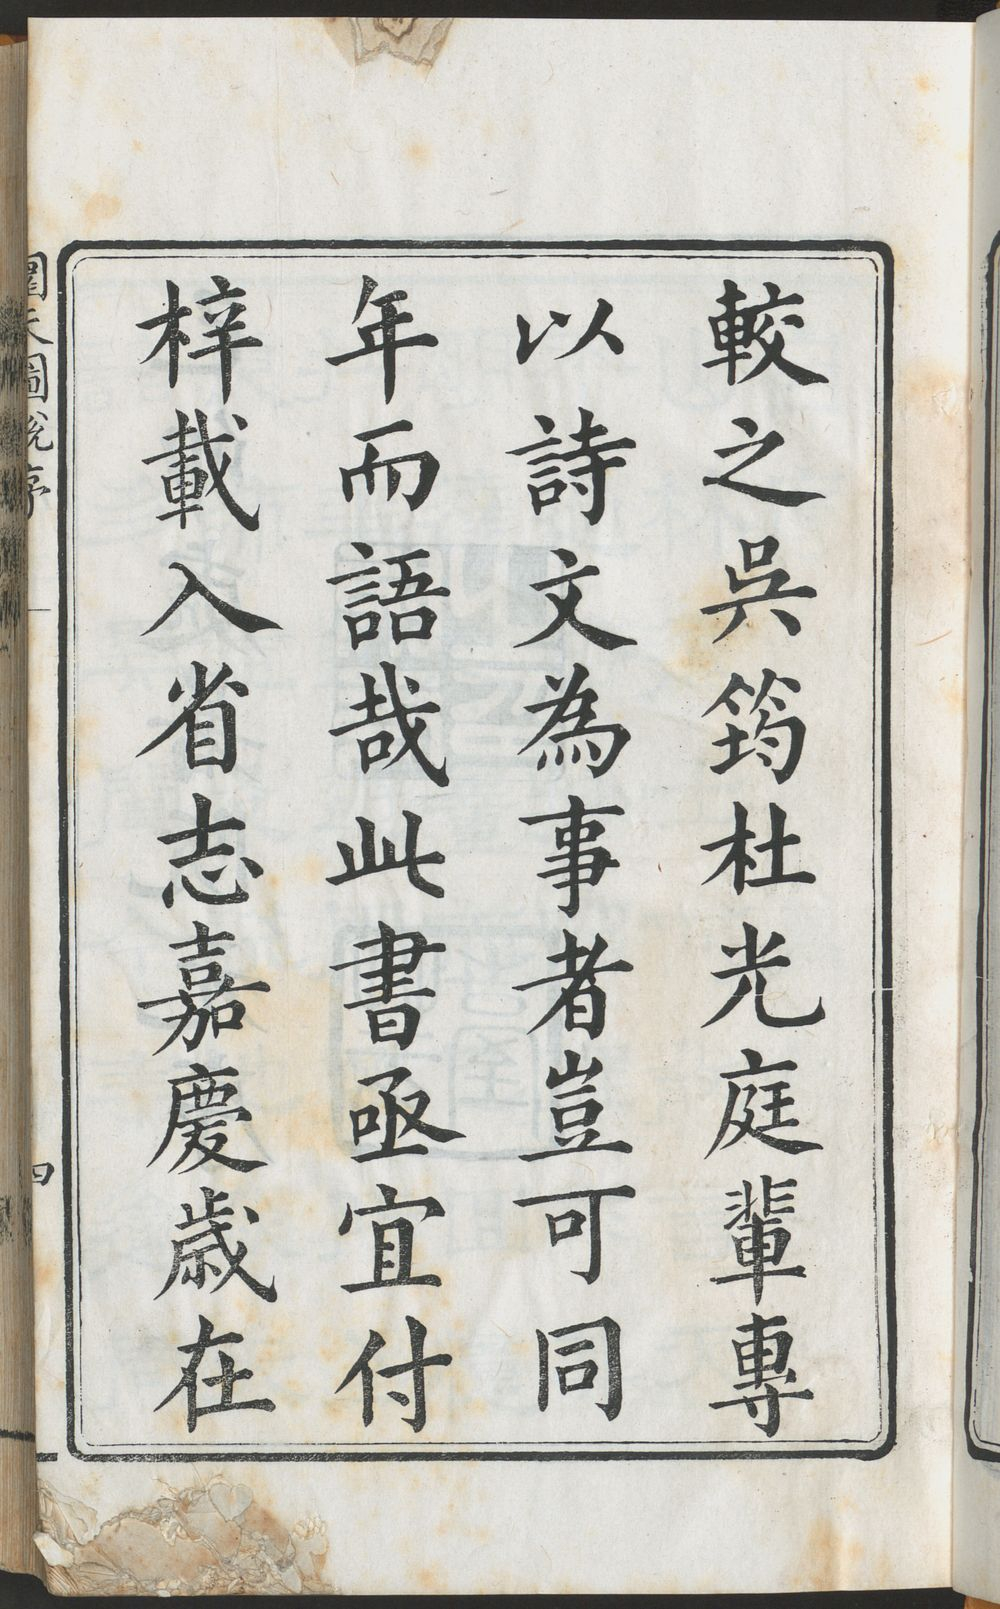 較之吳筠杜光庭輩專
以詩文為事者豈可同
年而語哉此書亟宜付
梓載入省志嘉慶歲在
圜天圖說序
四